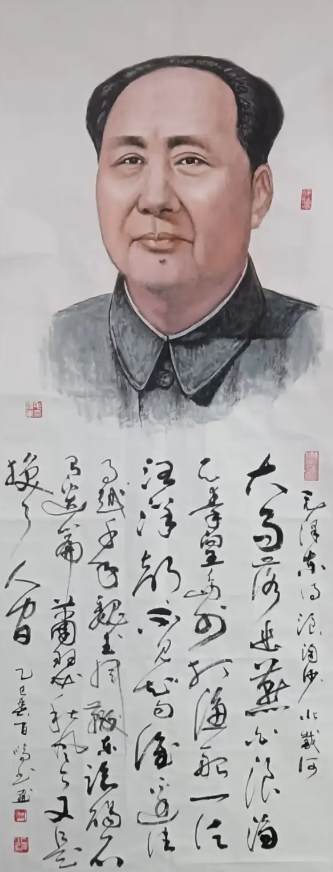 毛泽东 浪淘沙 北戴河
大雨落幽燕白浪滔
天秦皇岛外打渔船一片
汪洋都不见知向谁边往
事越千年魏武挥鞭东临碣石
有遗篇萧瑟秋风今又是
换了人间
乙巳春百鸣书画